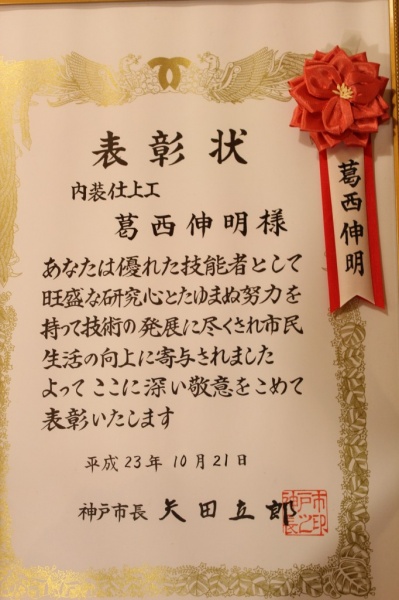 表彰状
内装仕上工
葛西伸明様
あなたは優れた技能者として
旺盛な研究心とたゆまぬ努力を
持って技術の発展に尽くされ市民
生活の向上に寄与されました
よってここに深い敬意をこめて
表彰いたします
平成23年10月21日
神戸市長 矢田立郎
神戸市長之印
葛西伸明